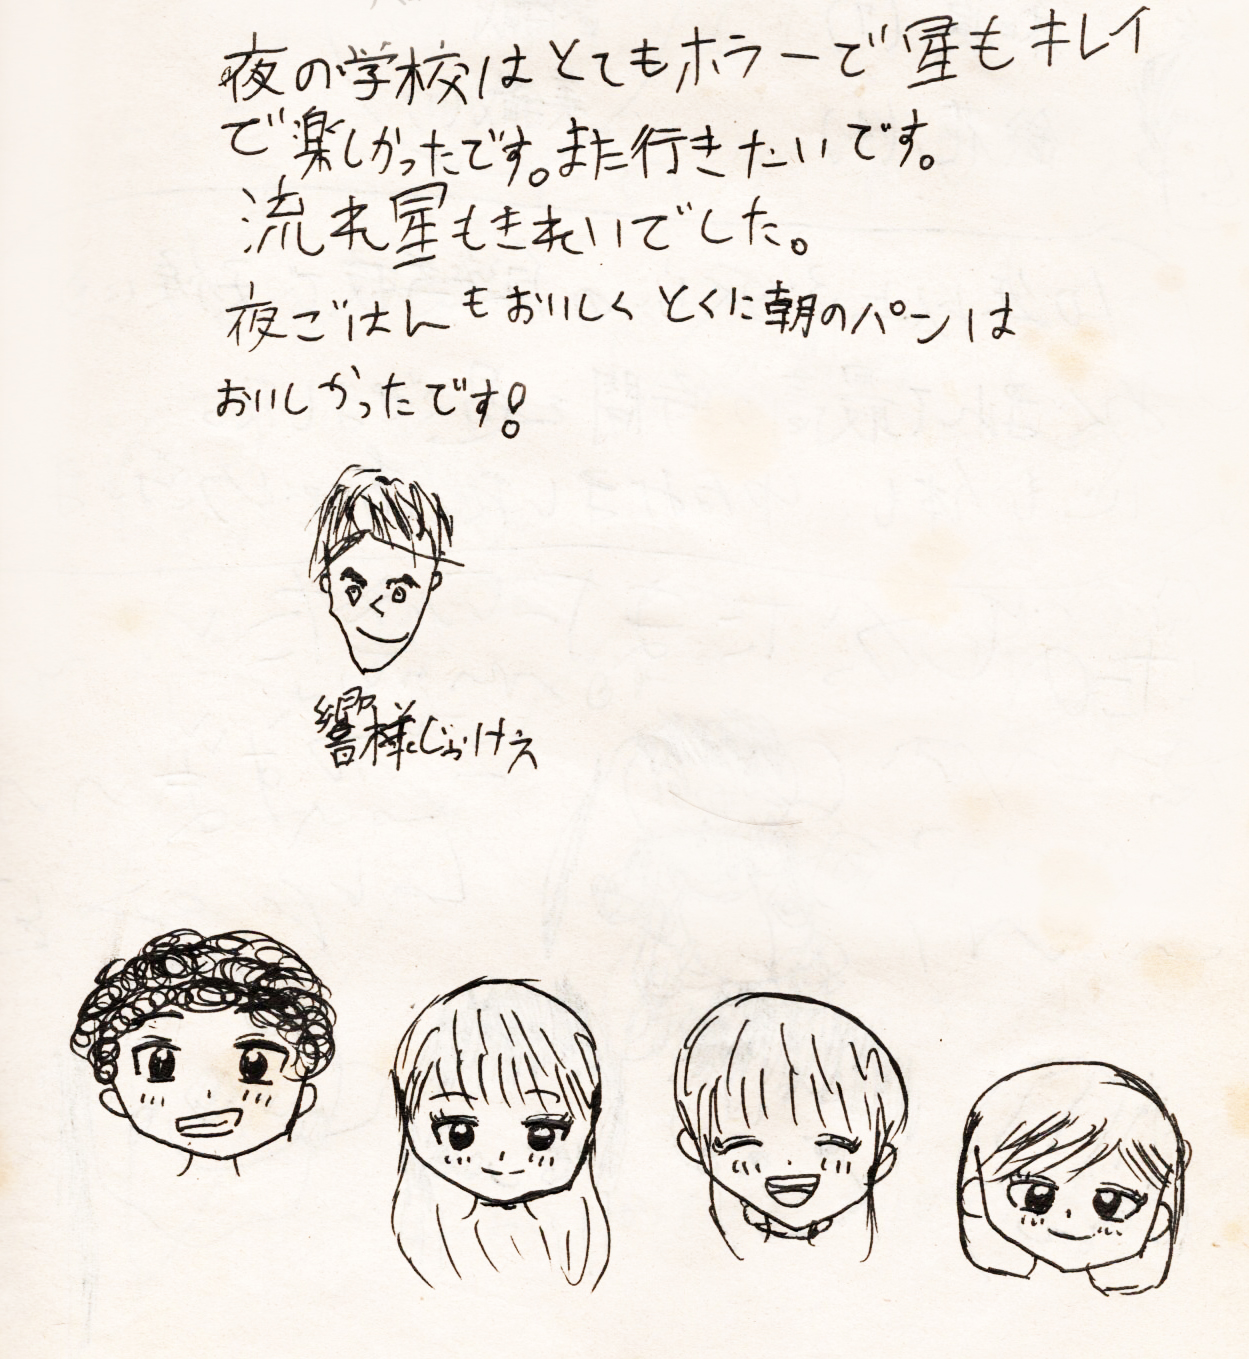 夜の学校はとてもホラーで星もキレイ
で楽しかったです。また行きたいです。
流れ星もきれいでした。
夜ごはんもおいしくとくに朝のパンは
おいしかったです!
響様じゃけぇ